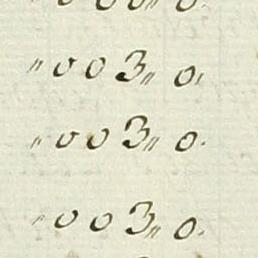 〃003〃0.
〃003〃0.
〃003〃0.